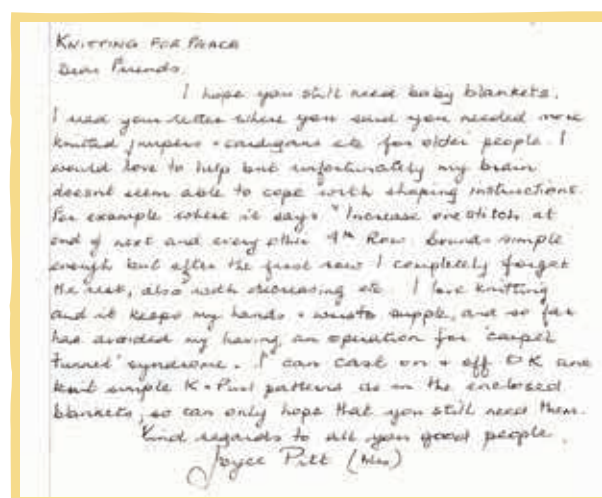 KNITTING FOR PEACE
Dear Friends,
I hope you still need baby blankets.
I read your letter where you said you needed more
knitted jumpers + cardigans etc for older people. I
would love to help but unfortunately my brain
doesnt seem able to cope with shaping instructions.
For example where it says "Increase one stitch at
end of next and every other 4th Row. Sounds simple
enough but after the first row I completely forget
the rest, also with decreasing etc. I love knitting
and it keeps my hands + wrists supple, and so far
has avoided my having an operation for 'carpel
tunnel' syndrome. I can cast on + off OK and
knit simple K + Purl patterns as in the enclosed
blankets, so can only hope that you still need them.
Kind regards to all you good people.
Joyce Pitt (Mrs)